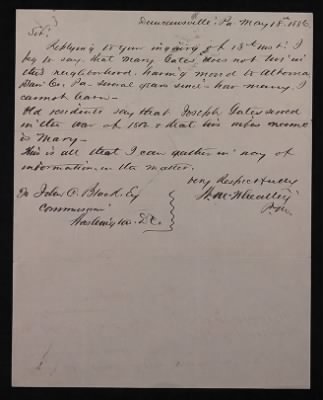 Duncansville, Pa. May 18th 1886
Sir:
Replying to your inquiry of 13th inst. I
beg to say that Mary Gates does not live in
this neighborhood, having moved to Altoona
Blair Co. Pa - several years since - how many I
cannot learn -
Old residents say that Joseph Gates served
in the war of 1812 & that his wifes name
is Mary -
This is all that I can gather in way of
information in the matter.
Very Respectfully
To John C. Black Esq
Commissioner
Washington D.C.
P.M.